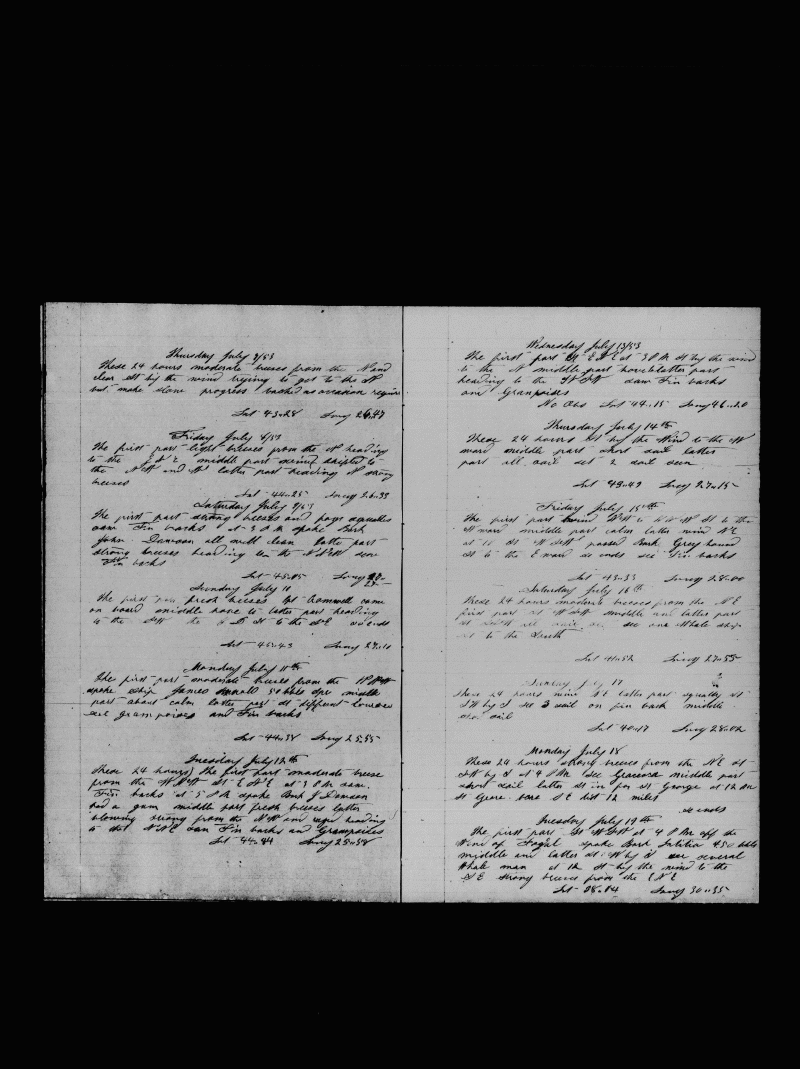 Thursday July 7/53
These 24 hours moderate breeses from the N and
clear St by the wind trying to get to the N
but make slow progress tacked as occasion requir
Lat 43..28 Long 26..47
Friday July 8/53
The first part light breeses from the N heading
to the E N E middle part wind shifted to
the N W and W latter part heading N strong
breeses
Lat 44..25 Long 26..38
Saturday July 9/53
The first part strong breeses and fogy squalles
saw Fin backs at 3 P M spoke Bark
John Dawson all well clean latter part
strong breeses heading to the N N W saw
Fin backs
Lat 45..05 Long
Sunday July 10
The first part fresh breeses Cpt Cromwell came
on board middle hove to latter part heading
to the SW to the SE so ends
Lat 45..43 Long 27..10
Monday July 11th
the first part moderate breeses from the
spoke ship James 50 bbls Spr middle
part about calm latter part St different courses
see grampuses and Fin backs
Lat 44..38 Long 25..55
Tuesday July 12th
These 24 hours) The first part moderate breese
from the W N W St E S E at 3 P M saw
Fin backs at 5 P M spoke Bark J Dawson
had a gam middle part fresh breeses latter
blowing strong from the N W and heading
to the N N E saw Fin backs and Grampuses
Lat 44..44 Long 25..58
Wednesday July 13/53
The first part St E S E at 3 P M St by the wind
to the N middle part latter part
heading to the saw Fin backs
and Grampuses
No Obs Lat 44..15 Long 26..20
Thursday July 14th
These 24 hours St by the Wind to the W
ward middle part short sail latter
part all sail set 2 sail seen
Lat 43..49 Long 27..15
Friday July 15th
The first part wind to St to the
ward middle part calm latter wind N E
at 10 St W S W passed Bark Grey hound
St to the E ward so ends see Fin backs
Lat 43..33 Long 28..00
Saturday July 16th
These 24 hours moderate breeses from the N E
first part St W S W middle and latter part
St all sail on see one Whale ship
St to the South
Lat 41..52 Long 27..55
Sunday July 17
these 24 hours wind N E latter part squally St
S W by S see 3 sail on fin back middle
short sail
Lat 40..17 Long 28..02
Monday July 18
These 24 hours strong breeses from the N E St
S W by S at 4 P M see Graceosa middle part
short sail latter St in for St George at 12 M
St George bore S E dist 12 miles
so ends
Tuesday July 19th
The first part St W S W at 4 P M off the
Wend of Fayal spoke Bark Latitia 450 bbls
middle and latter St W by S see several
Whale men at 12 St by the wind to the
S E strong breeses from the E N E
Lat 38..04 Long 30..35